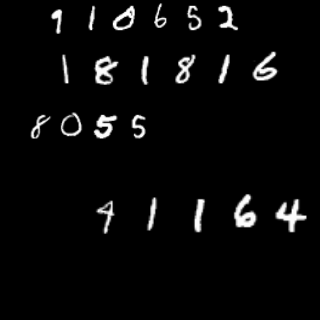 910652
181816
8055
41164